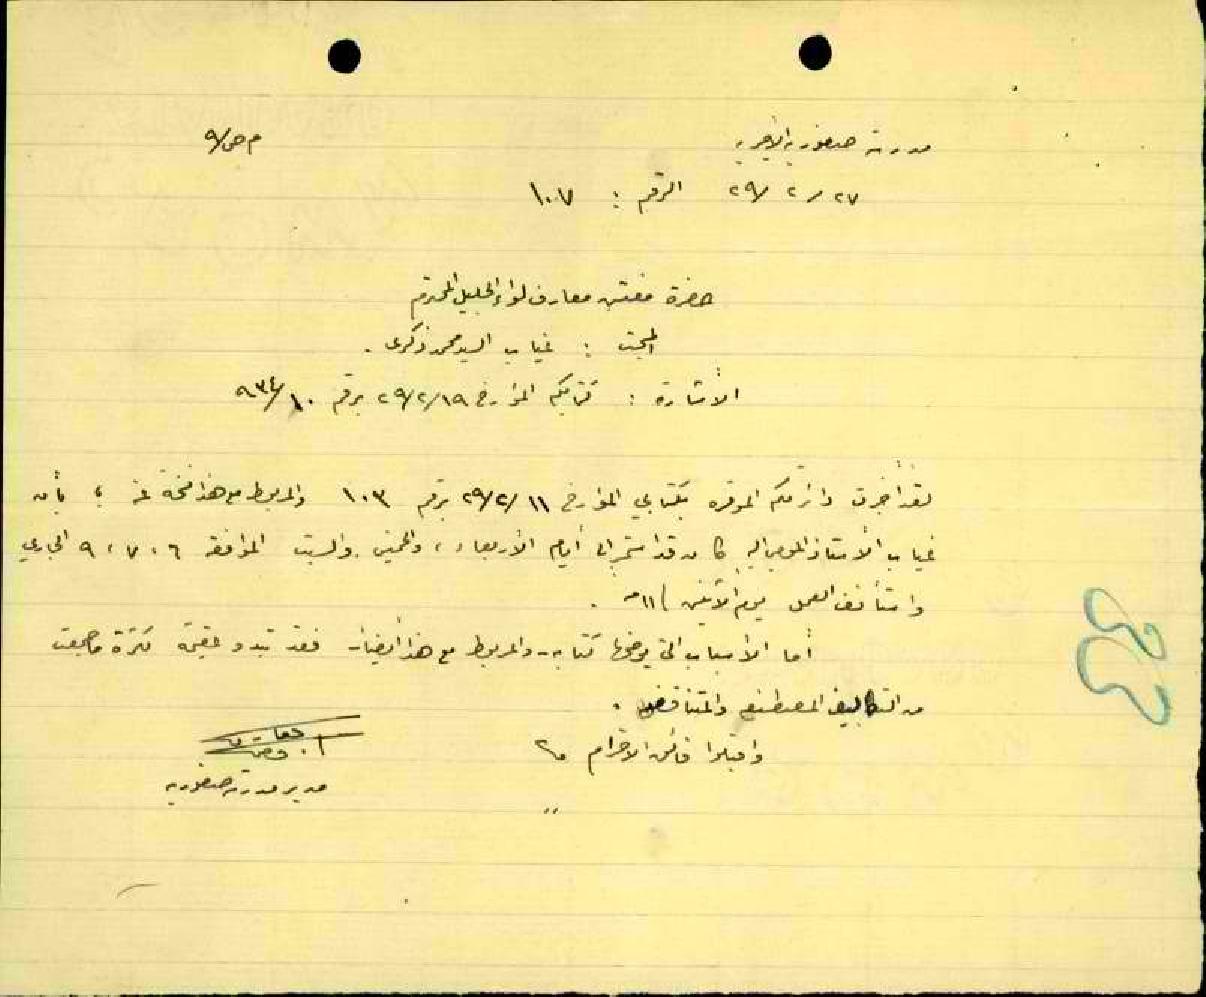 مدرسة صفورية الأميرية
م ص/٩
٢٧/٢/٢٩ الرقم : ١٠٧
حضرة مفتش معارف لواء الجليل المحترم
المبحث : غياب السيد محمد زكري .
الأشارة : كتابكم المؤرخ ٢٩/٢/١٩ برقم ٩٣٤/١٠
لقد أخبرت دائرتكم الموقرة بكتابي المؤرخ ٢٩/٢/١١ برقم ١٠٣ والمربوط مع هذا نسخة عنه ، بأن
غياب الأستاذ المومى اليه كان قد استمر الى أيام الأربعاء ، والخميس والسبت الموافقة ٦ ، ٧ ، ٩ الجاري
واستأنف العمل يوم الأثنين ١١ منه .
أما الأسباب التي يوضحها كتابه والمربوط مع هذا أيضا ، فقد تبدو عقيمة لكثرة ما جمعت
من التكاليف المصطنعة والمتناقضة .
واقبلوا فائق الاحترام
مدير مدرسة صفورية